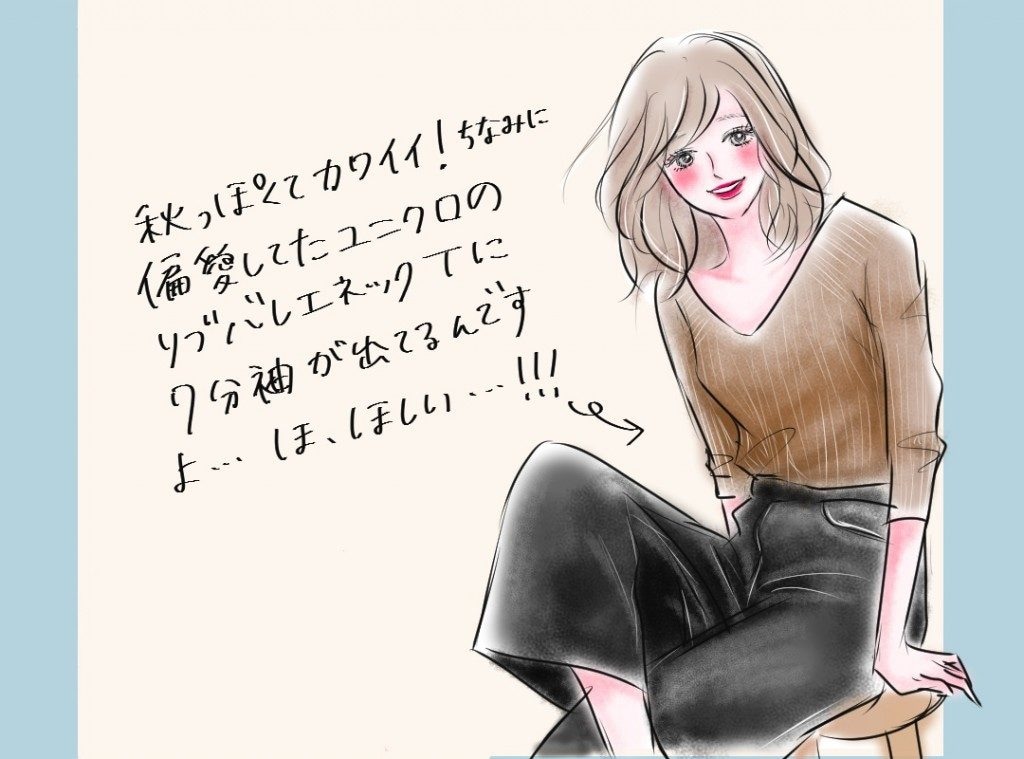 秋っぽくてカワイイ！ちなみに
偏愛してたユニクロの
リブバレエネックTに
7分袖が出てるんです
よ… ほ、ほしい…!!!